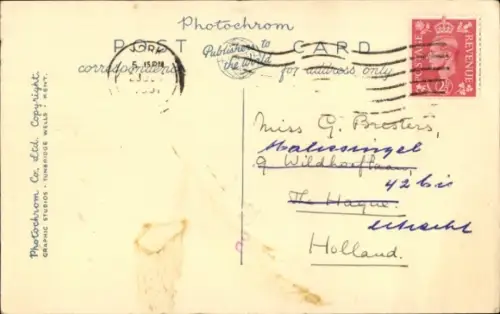 Photochrom
POST CARD
Publishers to
the World
correspondence
for address only
YORK
5. 15 PM
POSTAGE
REVENUE
Photochrom Co. Ltd. Copyright.
GRAPHIC STUDIOS - TUNBRIDGE WELLS - KENT.
Miss G. Bresters,
Maliesingel
9 Wildhoeflaan,
42 bis
The Hague.
Utrecht
Holland.